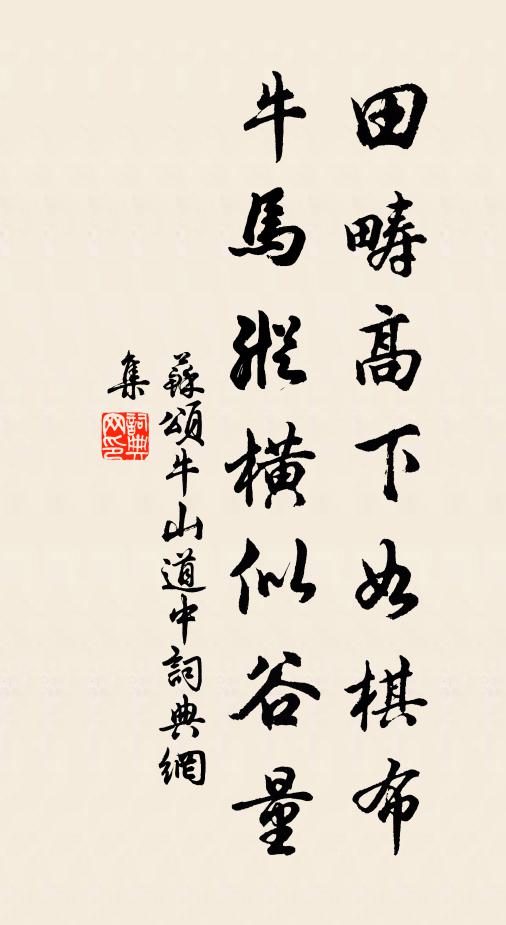 田疇高下如棋布
牛馬縱橫似谷量
蘇頌牛山道中詞典網
集
詞典
网印